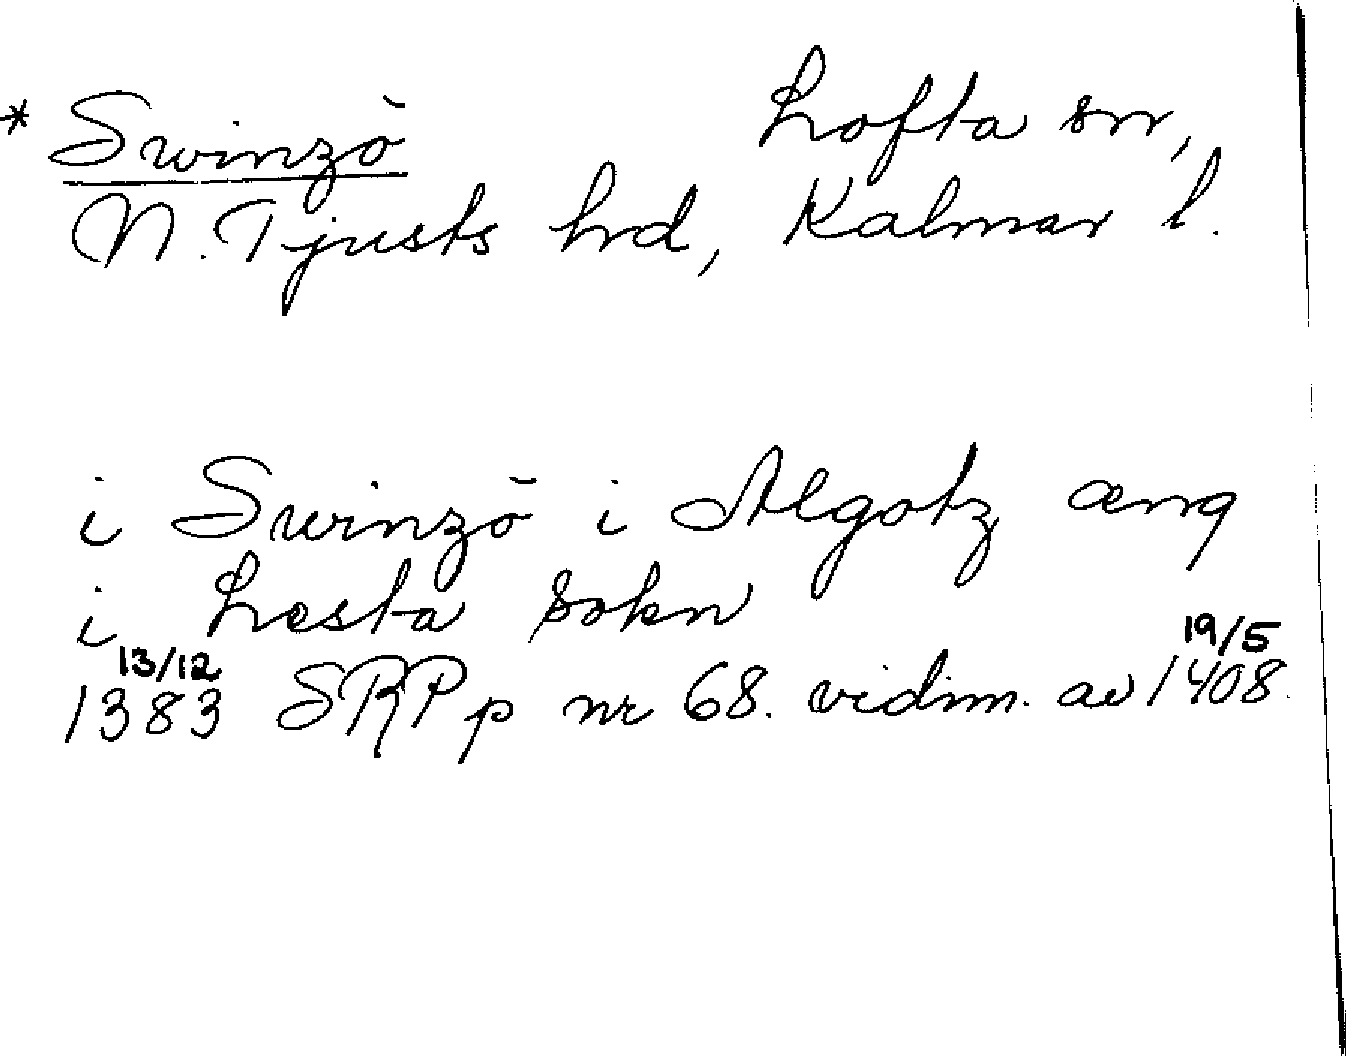 * Swinzö Lofta sn,
N. Tjusts hrd, Kalmar l.
i Swinzö i Algotz æng
i Lofta sokn
13/12 19/5
1383 SRPp nr 68. vidim. av 1408.